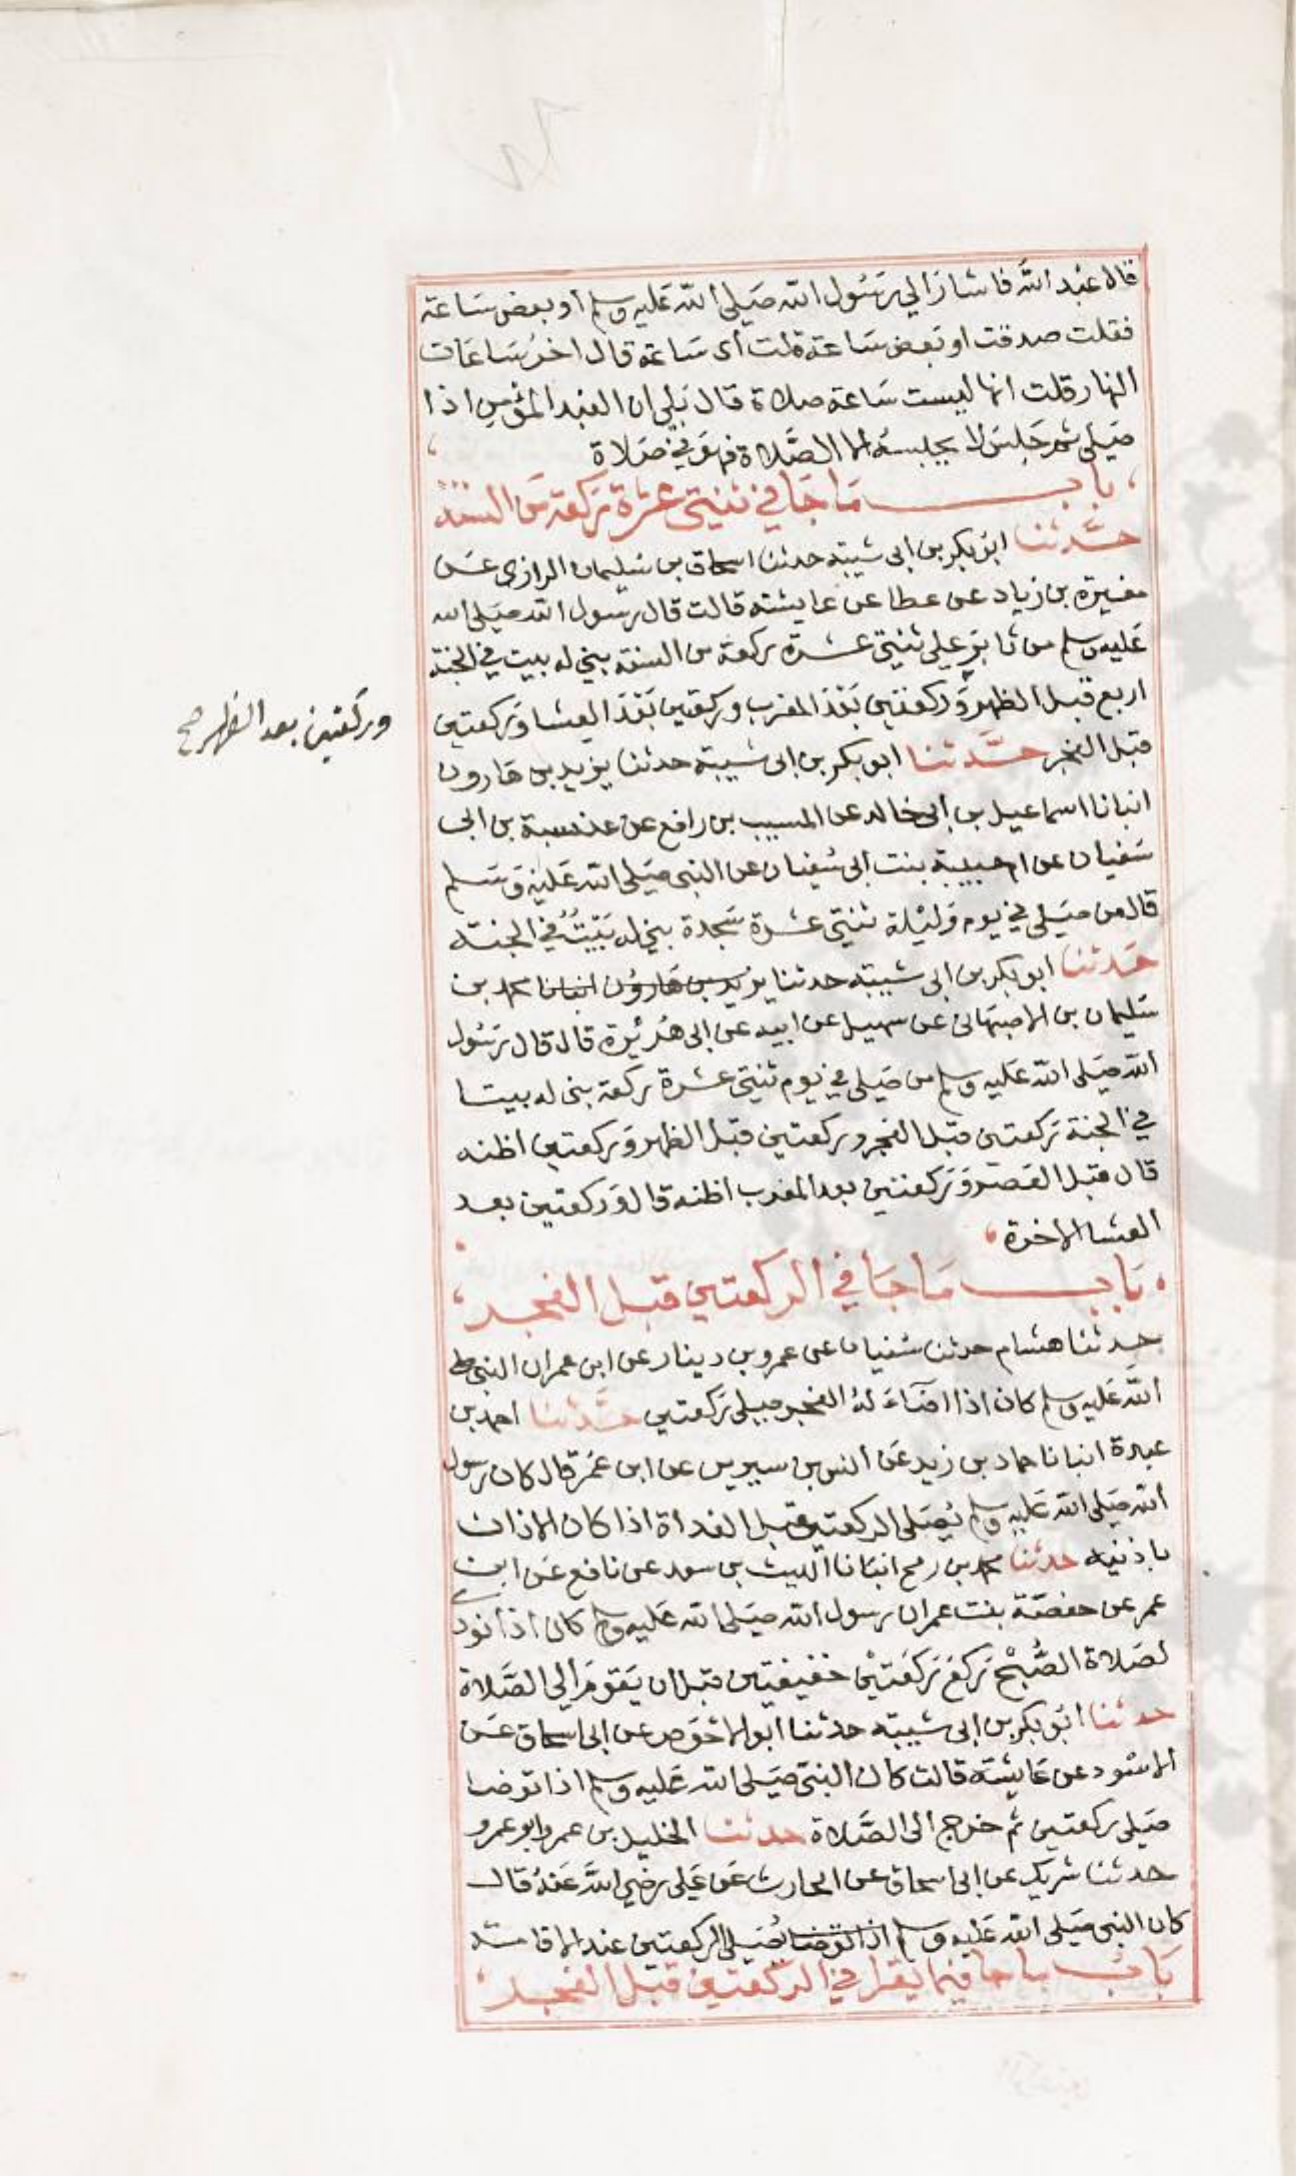 قال عبد الله فاشار الي رسول الله صلي الله عليه وسلم او بعض ساعة
فقلت صدقت او بعض ساعة قلت أي ساعة قال اخر ساعات
النهار قلت انها ليست ساعة صلاة قال بلي ان العبد المؤمن اذا
صلي ثم جلس لا يجلسه الا الصلاة فهو في صلاة
باب ما جا في ثنيتي عشرة ركعة من السنة
حدثنا ابو بكر بن ابي شيبة حدثنا اسحاق بن سليمان الرازي عن
مغيرة بن زياد عن عطا عن عايشة قالت قال رسول الله صلي الله
عليه وسلم من ثابر علي ثنيتي عشرة ركعة من السنة بني له بيت في الجنة
اربع قبل الظهر وركعتين بعد المغرب وركعتين بعد العشا وركعتين
وركعتين بعد الظهر صح
قبل الفجر حدثنا ابو بكر بن ابي شيبة حدثنا يزيد بن هارون
انبانا اسماعيل بن ابي خالد عن المسيب بن رافع عن عنبسة بن ابي
سفيان عن ام حبيبة بنت ابي سفيان عن النبي صلي الله عليه وسلم
قال من صلي في يوم وليلة ثنيتي عشرة سجدة بني له بيت في الجنة
حدثنا ابو بكر بن ابي شيبة حدثنا يزيد بن هارون انبانا محمد بن
سليمان بن الاصبهاني عن سهيل عن ابيه عن ابي هريرة قال قال رسول
الله صلي الله عليه وسلم من صلي في يوم ثنيتي عشرة ركعة بني له بيتا
في الجنة ركعتين قبل الفجر وركعتين قبل الظهر وركعتين اظنه
قال قبل العصر وركعتين بعد المغرب اظنه قال وركعتين بعد
العشا الاخرة
باب ما جا في الركعتين قبل الفجر
حدثنا هشام حدثنا سفيان عن عمرو بن دينار عن ابن عمر ان النبي صلى
الله عليه وسلم كان اذا اضاء له الفجر صلي ركعتين حدثنا احمد بن
عبدة انبانا حماد بن زيد عن انس بن سيرين عن ابن عمر قال كان رسول
الله صلي الله عليه وسلم يصلي الركعتين قبل الغداة اذا كان الاذان
باذنيه حدثنا محمد بن رمح انبانا الليث بن سعد عن نافع عن ابن
عمر عن حفصة بنت عمر ان رسول الله صلي الله عليه وسلم كان اذا نودي
لصلاة الصبح ركع ركعتين خفيفتين قبل ان يقوم الي الصلاة
حدثنا ابو بكر بن ابي شيبة حدثنا ابو الاحوص عن ابي اسحاق عن
الاسود عن عايشة قالت كان النبي صلي الله عليه وسلم اذا توضا
صلي ركعتين ثم خرج الي الصلاة حدثنا الخليل بن عمرو ابو عمرو
حدثنا شريك عن ابي اسحاق عن الحارث عن علي رضي الله عنه قال
كان النبي صلي الله عليه وسلم اذا توضا يصلي الركعتين عند الاقامة
باب ما جا فيما يقرا في الركعتين قبل الفجر